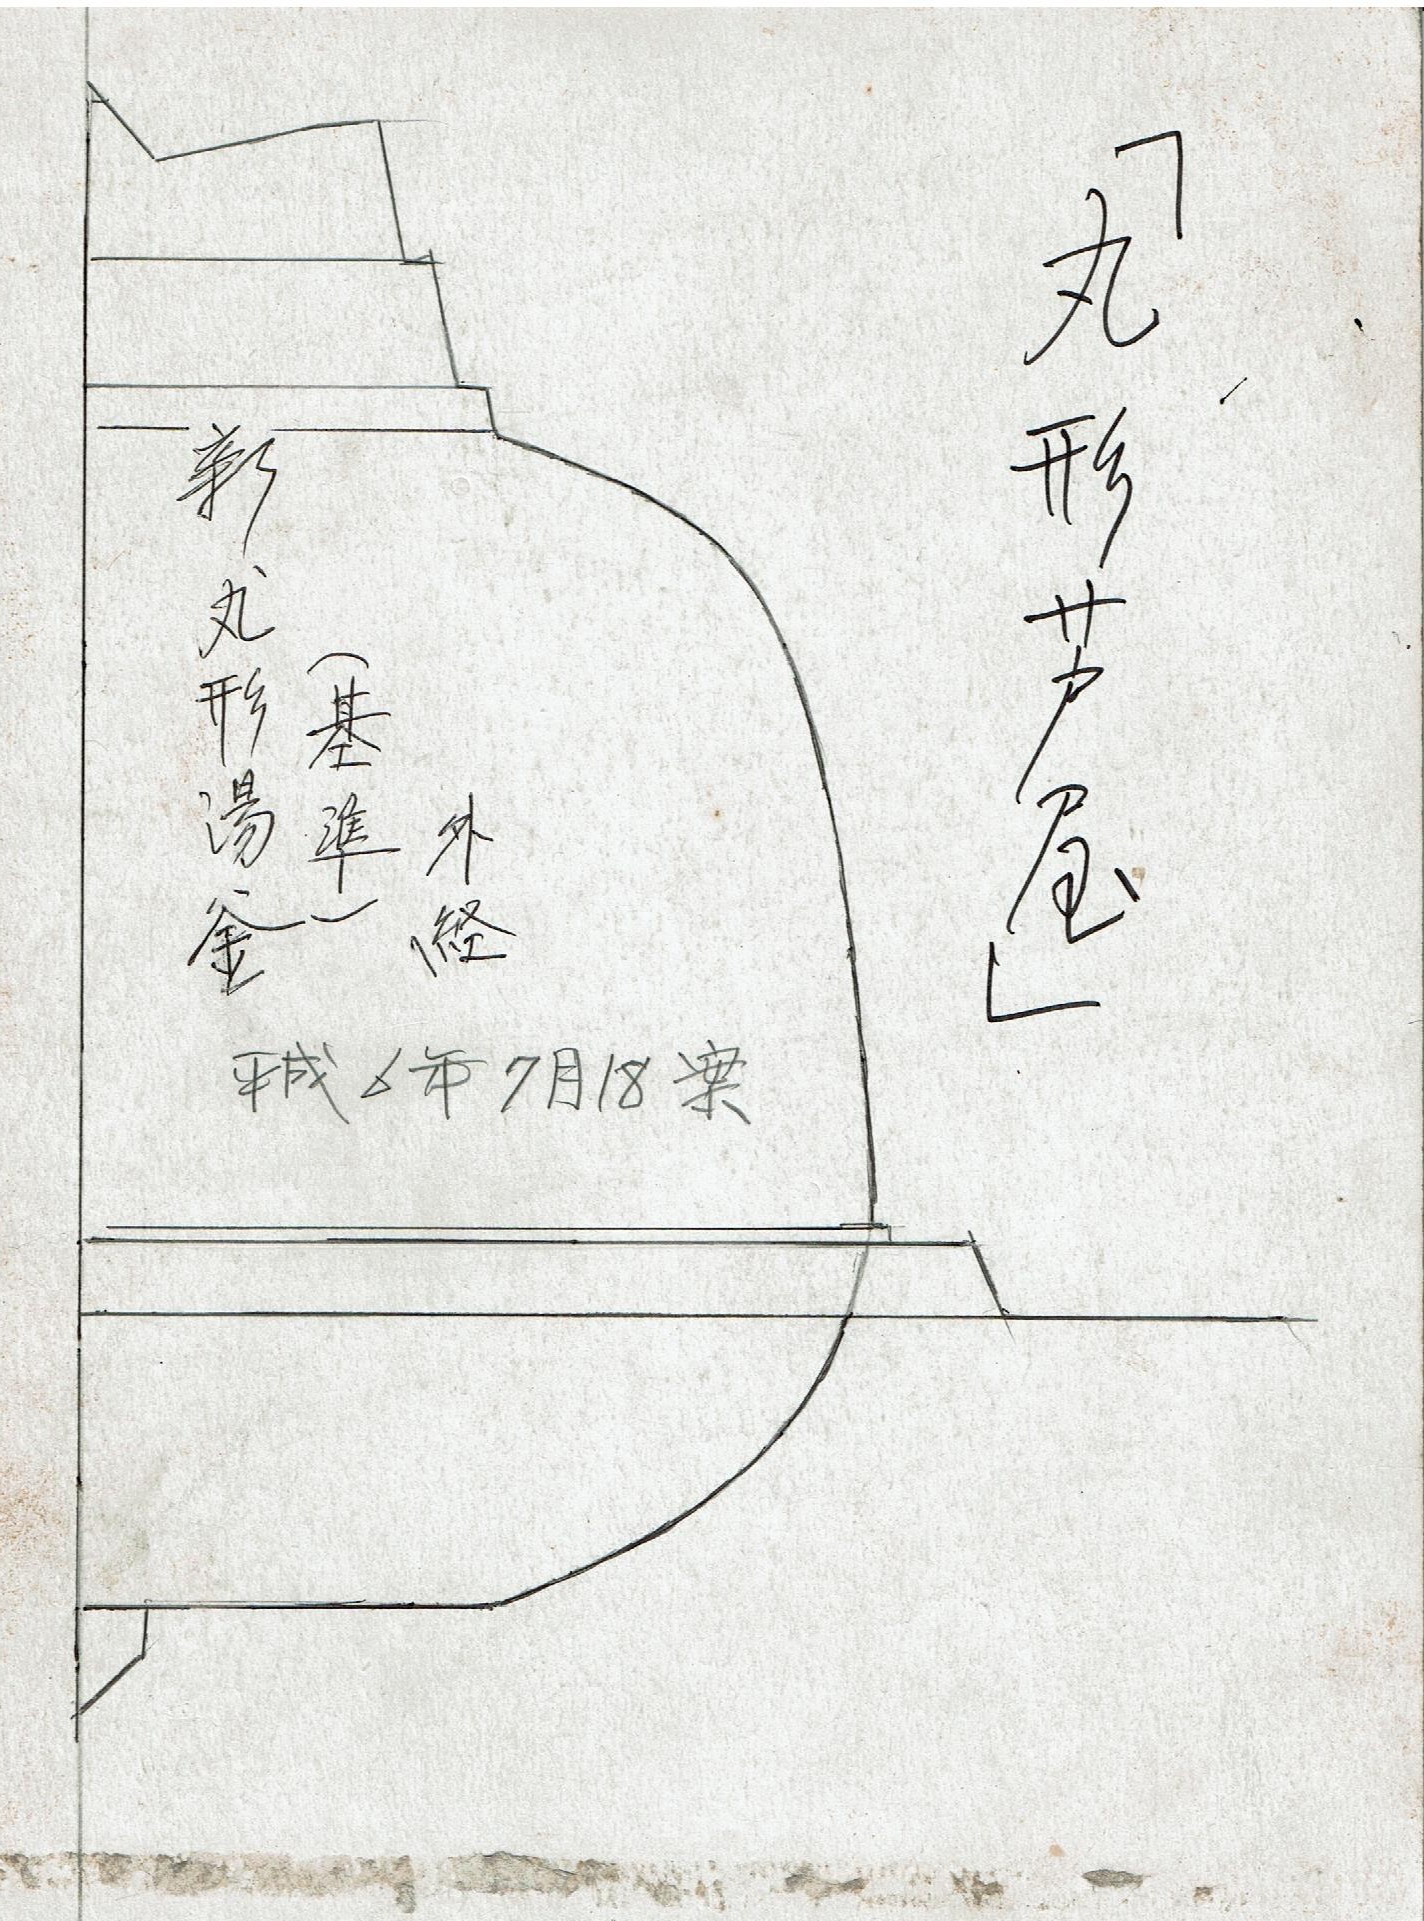 「丸形芦屋」
外経
(基準)
新丸形湯釜
平成6年7月18案